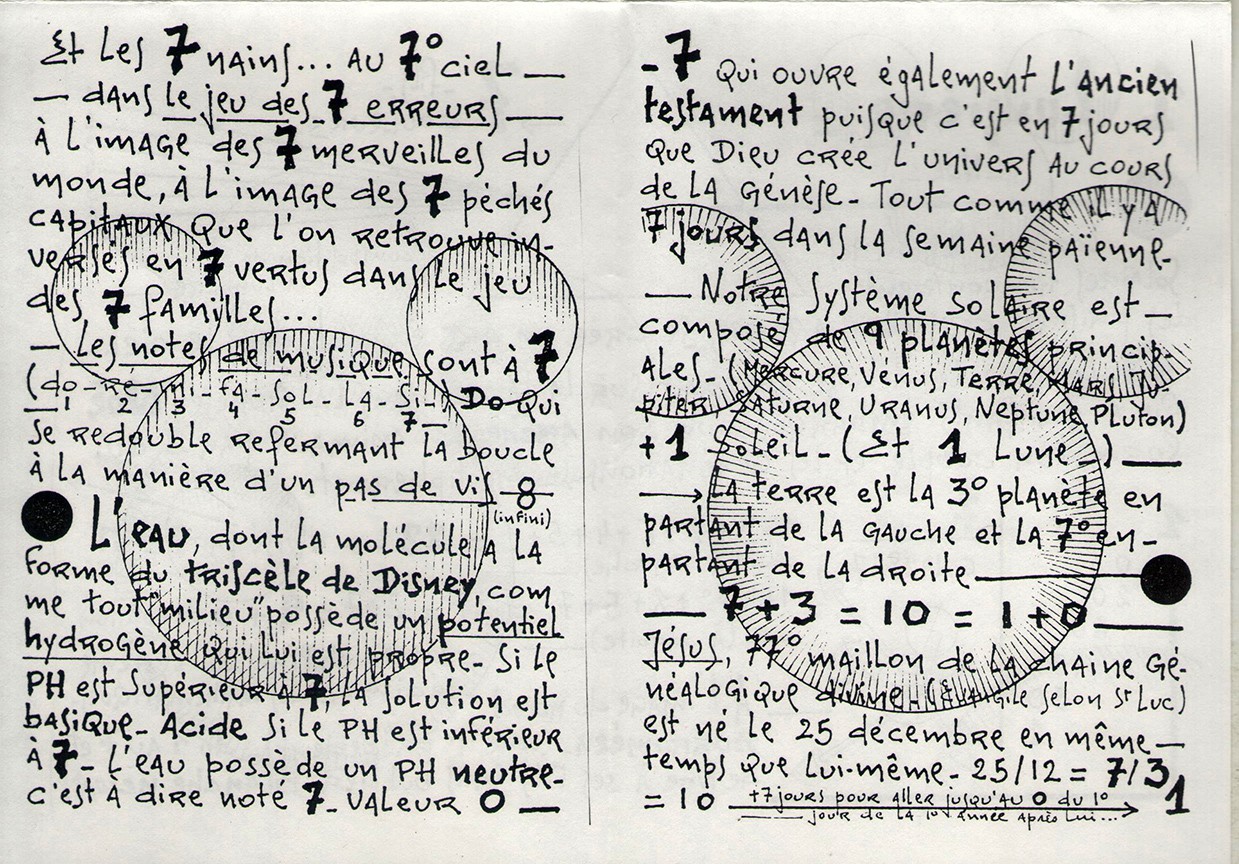 Et Les 7 nains... AU 7° ciel —
— dans le jeu des 7 erreurs —
À L'image des 7 merveilles du
monde, À L'image des 7 péchés
capitaux Que l'on retrouve in-
verses en 7 vertus dans Le jeu
des 7 familles...
— Les notes de musique sont à 7
(do - ré - mi - fA - SoL - LA - Si -) Do Qui
1 2 3 4 5 6 7
Se redouble refermant la boucle
à la manière d'un pas de vis 8
(infini)
L'eau, dont la molécule A LA
forme du triscèle de Disney, com
me tout "milieu" possède un potentiel
hydrogène qui Lui est propre - Si le
PH est Supérieur à 7, la solution est
basique - Acide si le PH est inférieur
à 7 - L'eau possède un PH neutre -
c'est à dire noté 7 - valeur 0 —
- 7 Qui ouvre également L'Ancien
testament puisque c est en 7 jours
que Dieu crée L'univers Au cours
de LA Génèse - Tout comme iL y A
7 jours dans la semaine païenne -
— Notre Système solaire est —
composé de 9 planètes princip-
ALes - (Mercure, Vénus, Terre, Mars, Ju-
piter Saturne, Uranus, Neptune Pluton)
+ 1 Soleil - (Et 1 Lune -) —
→ La terre est la 3° planète en
partant de la gauche et la 7° en -
partant de la droite —
— 7 + 3 = 10 = 1 + 0 —
Jésus, 77° maillon de la chaine Gé-
néalogique divine - (Évangile Selon St Luc)
est né le 25 décembre en même —
temps que Lui-même - 25/12 = 7/3
= 10 +7 jours pour aller jusqu'au 0 du 1° 1
jour de la 1° année après Lui...